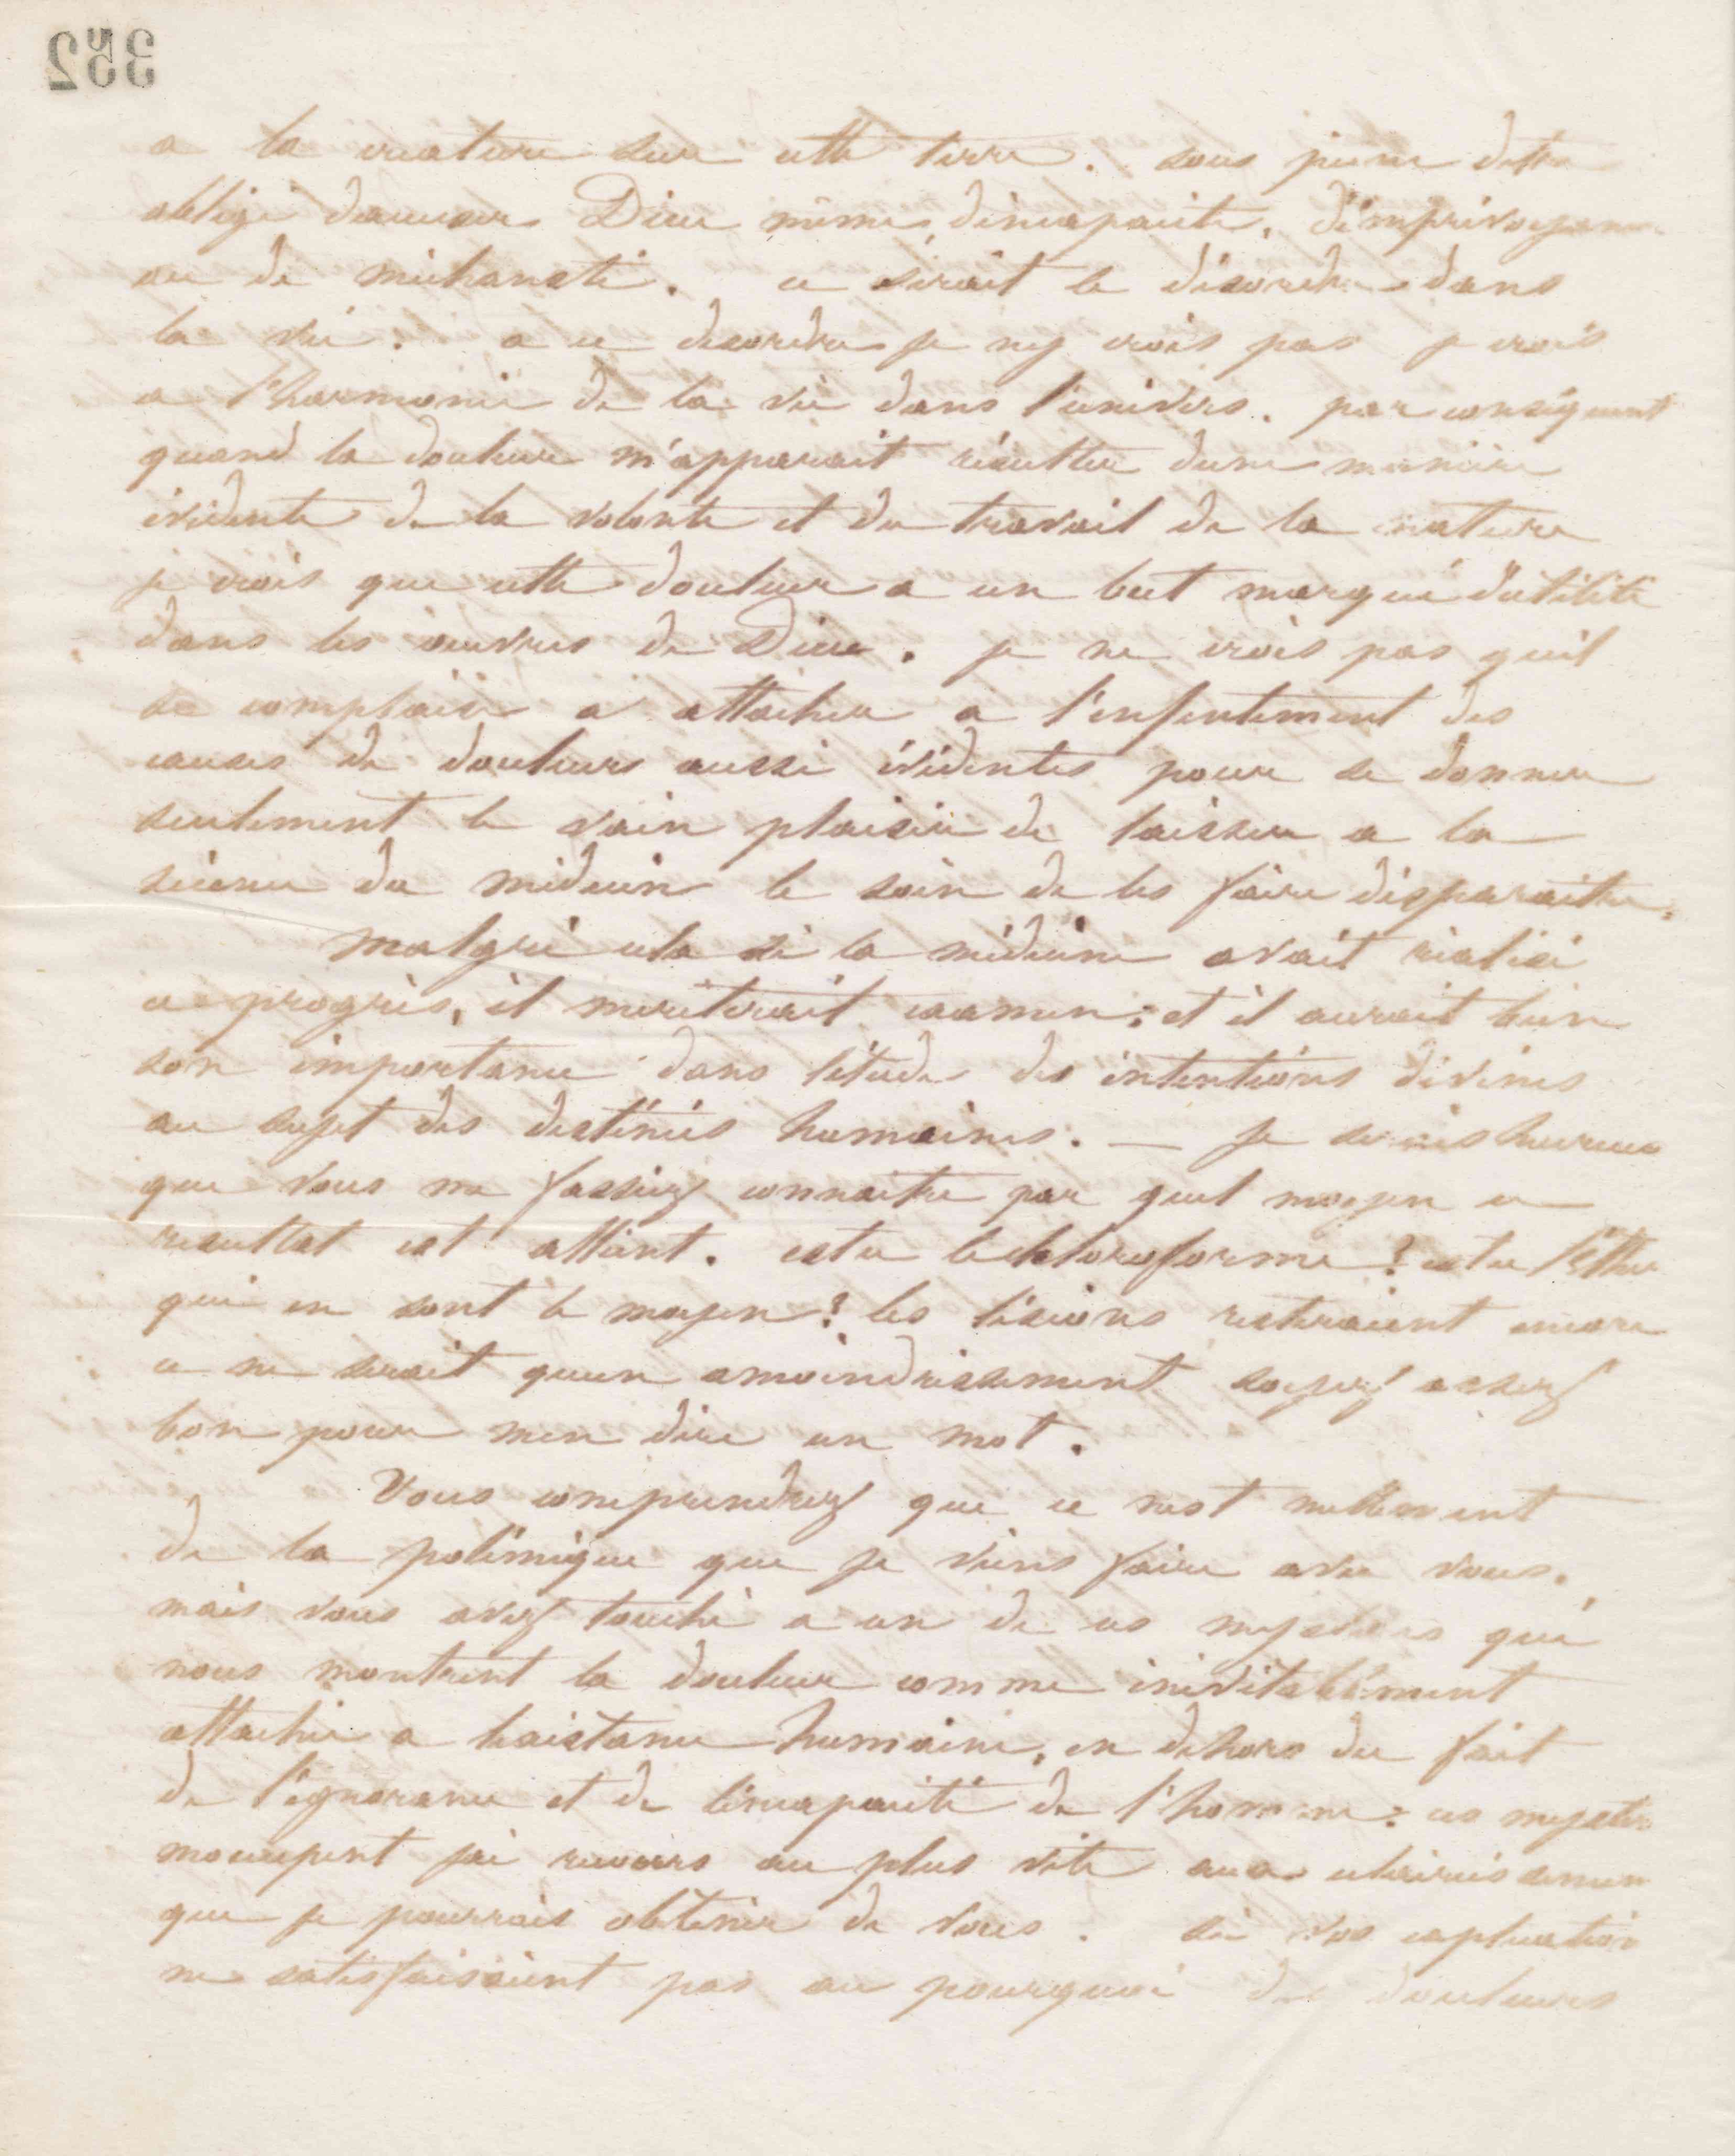 352
a la créature sur cette terre. sous peine detre
obligé daccuser Dieu même, dincapacité, dimprévoyance
ou de méchanceté. ce serait le désordre dans
la vie. a ce desordre je ny crois pas je crois
a l'harmonie de la vie dans l'univers. par conséquent
quand la douleur m'apparait résulter dune manière
évidente de la volonté et du travail de la nature
je crois que cette douleur a un but marqué d'utilité
dans les œuvres de Dieu. je ne crois pas quil
se complaise a attacher a l'enfentement des
causes de douleurs aussi évidentes pour se donner
seulement le vain plaisir de laisser a la
science du médecin le soin de les faire disparaitre.
Malgré cela si la médecine avait réalisé
ce progrès, il meriterait examen; et il aurait bien
son importance dans létude des intentions divines
au sujet des destinées humaines. — je serais heureux
que vous me fassiez connaitre par quel moyen ce
resultat est attient. estce le chloroforme? estce l'éther
qui en sont le moyen? les lésions resteraient encore
ce ne serait quun amoindrissement soyez assez
bon pour men dire un mot.
Vous comprendrez que ce nest nullement
de la polémique que je viens faire avec vous.
mais vous avez touché a un de ces mysteres qui
nous montrent la douleur comme inévitablement
attachée a lexistance humaine, en dehors du fait
de l'ignorance et de lincapacité de l'homme: ces mystères
moccupent jai recours au plus vite aux eclaircissemen
que je pourrais obtenir de vous. si vos explication
ne satisfaisaient pas au pourquoi des douleurs